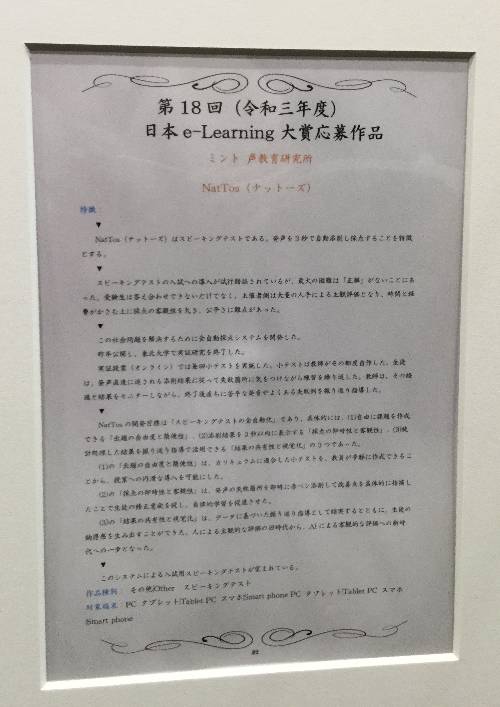 第18回（令和三年度）
日本 e-Learning 大賞応募作品
ミント 声教育研究所
NatTos（ナットーズ）
特徴：
▼
NatTos（ナットーズ）はスピーキングテストである。発声を3秒で自動添削し採点することを特徴
とする。
▼
スピーキングテストの入試への導入が試行錯誤されているが、最大の困難は「正解」がないことにあ
った。受験生は答え合わせできないだけでなく、主催者側は大量の人手による主観評価となり、時間と経
費がかさむ上に採点の客観性を欠き、公平さに難点があった。
▼
この社会問題を解決するために全自動採点システムを開発した。
昨年公開し、東北大学で実証研究を終了した。
実証授業（オンライン）では毎回小テストを実施した。小テストは教師がその都度自作した。生徒
は、発声直後に返される添削結果に従って失敗箇所に気をつけながら練習を繰り返した。教師は、その経
過と結果をモニターしながら、終了後直ちに苦手な発音やよくある失敗例を振り返り指導した。
▼
NatTos の開発目標は「スピーキングテストの全自動化」であり、具体的には、(1)自由に課題を作成
できる「出題の自由度と簡便性」、(2)添削結果を3秒以内に表示する「採点の即時性と客観性」、(3)統
計処理した結果を振り返り指導で活用できる「結果の共有性と視覚化」の3つであった。
(1)の「出題の自由度と簡便性」は、カリキュラムに適合した小テストを、教員が手軽に作成できるこ
とから、授業への円滑な導入を可能にした。
(2)の「採点の即時性と客観性」は、発声の失敗箇所を即時に赤ペン添削して改善点を具体的に指摘し
たことで生徒の修正意欲を促し、自律的学習を促進させた。
(3)の「結果の共有性と視覚化」は、データに基づいた振り返り指導として結実するとともに、生徒の
納得感を生み出すことができた。人による主観的な評価の旧時代から、AI による客観的な評価への新時
代への一歩となった。
▼
このシステムによる入試用スピーキングテストが望まれている。
作品種別： その他|Other スピーキングテスト
対象端末：PC タブレット|Tablet PC スマホSmart phone PC タブレット|Tablet PC スマホ
|Smart phone